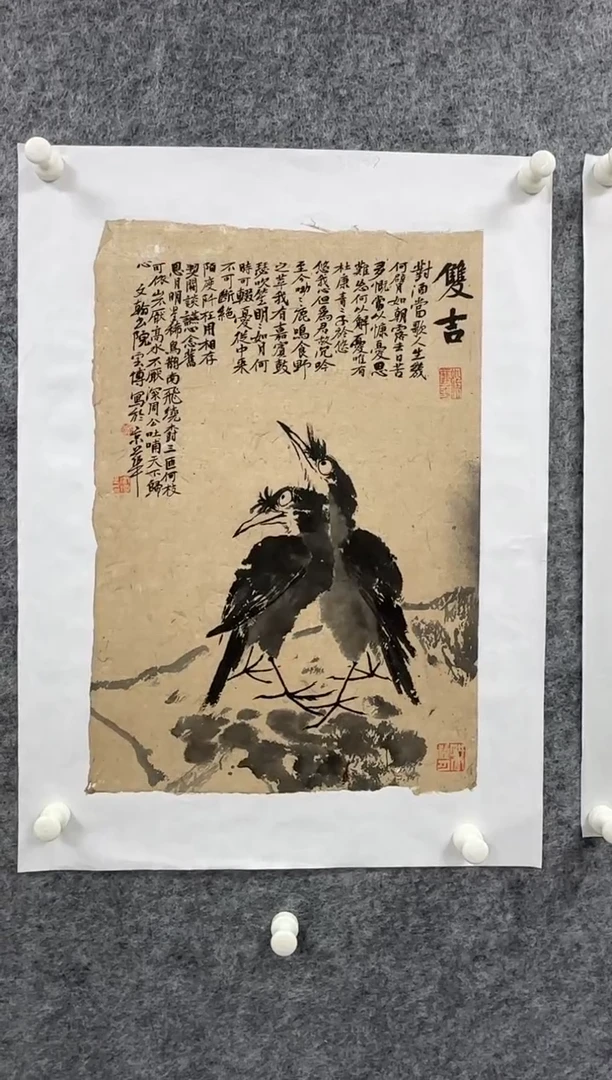 雙吉
對酒當歌人生幾
何譬如朝露去日苦
多慨當以慷憂思
難忘何以解憂唯有
杜康青々子衿悠
悠我心但爲君故沉吟
至今呦々鹿鳴食野
之苹我有嘉賓鼓
瑟吹笙明々如月何
時可輟憂從中來
不可斷絕
陌度阡枉用相存
契闊談讌心念舊
恩月明星稀烏鵲南飛繞樹三匝何枝
可依山不厭高水不厭深周公吐哺天下歸
心 文翰書院雲博寫於京華